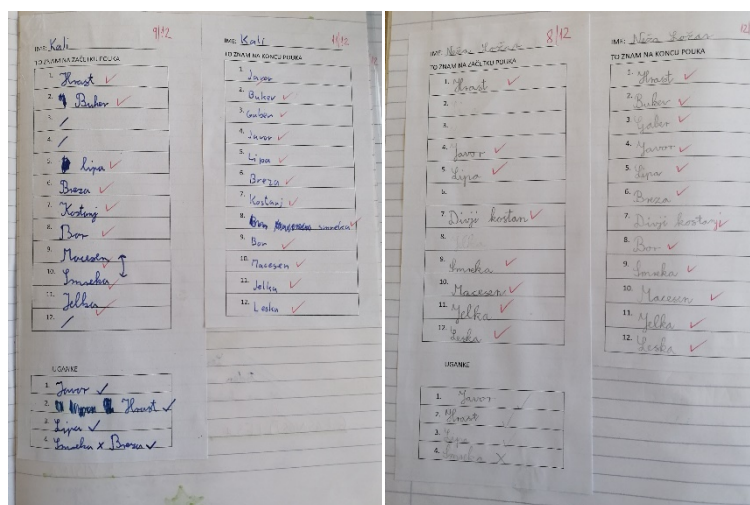 IME: Kali 9/12
TO ZNAM NA ZAČETKU POUKA
1. Hrast ✓
2. Bukev ✓
3. /
4. /
5. Lipa ✓
6. Breza ✓
7. Kostanj ✓
8. Bor ✓
9. Macesen
10. Smreka ✓
11. Jelka ✓
12. /
UGANKE
1. Javor ✓
2. Hrast ✓
3. Lipa ✓
4. Smreka x Breza ✓
IME: Kali 11/12
TO ZNAM NA KONCU POUKA
1. Javor
2. Bukev ✓
3. Gaber ✓
4. Javor ✓
5. Lipa ✓
6. Breza ✓
7. Kostanj ✓
8. smreka ✓
9. Bor ✓
10. Macesen ✓
11. Jelka ✓
12. Leska ✓
IME: Neža 8/12
TO ZNAM NA ZAČETKU POUKA
1. Hrast ✓
2.
3.
4. Javor ✓
5. Lipa ✓
6.
7. Divji kostan ✓
8.
9. Smreka ✓
10. Macesen ✓
11. Jelka ✓
12. Leska ✓
UGANKE
1. Javor
2. Hrast
3. Lipa
4. Smreka X
IME: Neža
TO ZNAM NA KONCU POUKA
1. Hrast ✓
2. Bukev ✓
3. Gaber ✓
4. Javor ✓
5. Lipa ✓
6. Breza ✓
7. Divji kostanj
8. Bor ✓
9. Smreka ✓
10. Macesen ✓
11. Jelka ✓
12. Leska ✓